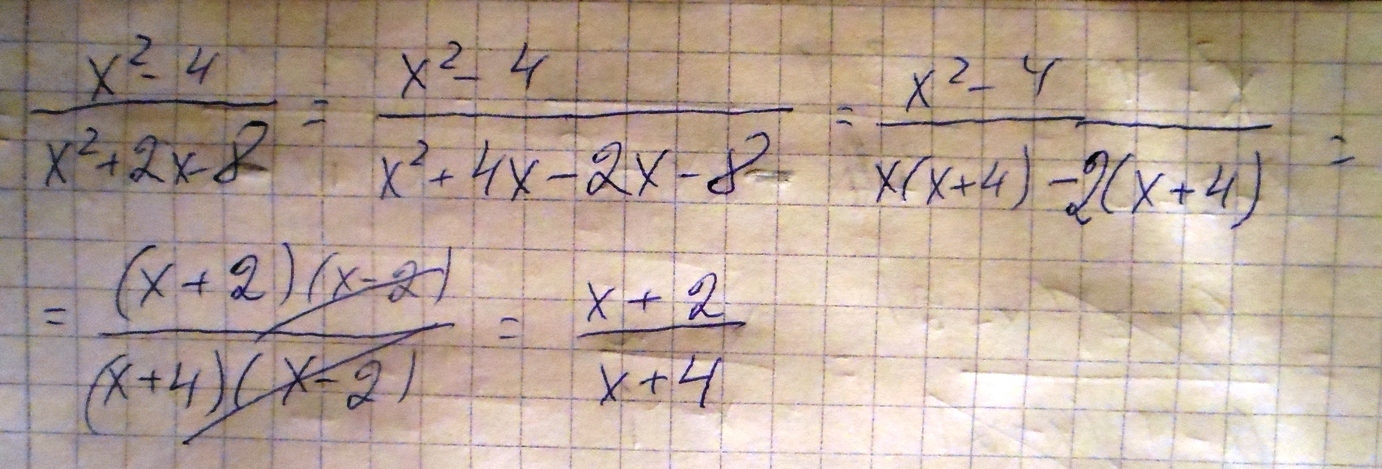 x²-4 / x²+2x-8 = x²-4 / x²+4x-2x-8 = x²-4 / x(x+4)-2(x+4) =
= (x+2)(x-2) / (x+4)(x-2) = x+2 / x+4